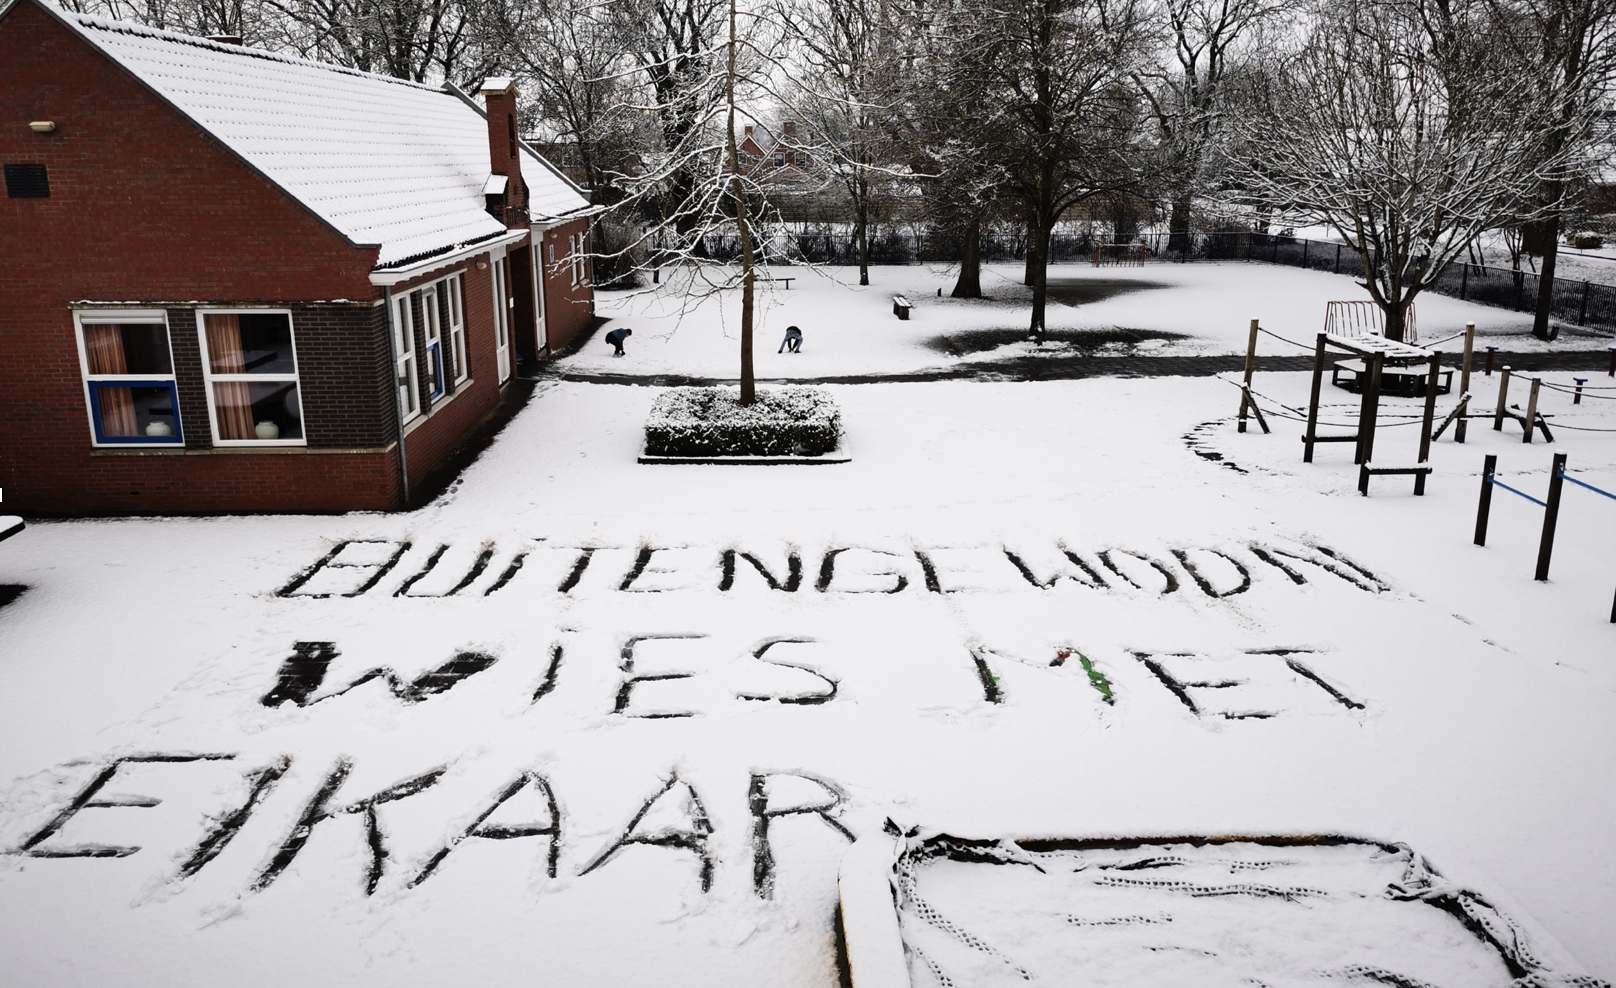 BUiTENGEWOON
WiES MET
ElKAAR